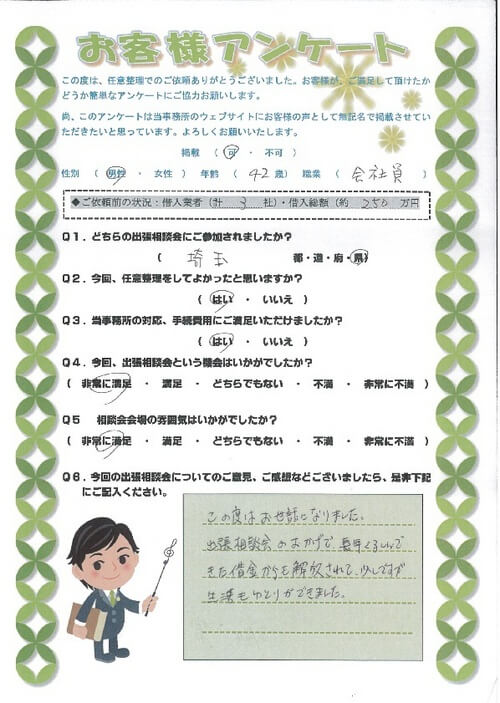 お客様アンケート
この度は、任意整理でのご依頼ありがとうございました。お客様が、ご満足して頂けたか
どうか簡単なアンケートにご協力お願いします。
尚、このアンケートは当事務所のウェブサイトにお客様の声として無記名で掲載させてい
ただきたいと思っています。よろしくお願いいたします。
掲載 ( 可 ・ 不可 )
性別 ( 男性 ・ 女性 ) 年齢 ( 42 歳) 職業 ( 会社員 )
◆ご依頼前の状況:借入業者(計 3 社)・借入総額(約 250 万円
Q1.どちらの出張相談会にご参加されましたか?
( 埼玉 都・道・府・県)
Q2.今回、任意整理をしてよかったと思いますか?
( はい ・ いいえ )
Q3.当事務所の対応、手続費用にご満足いただけましたか?
( はい ・ いいえ )
Q4.今回、出張相談会という機会はいかがでしたか?
( 非常に満足 ・ 満足 ・ どちらでもない ・ 不満 ・ 非常に不満 )
Q5 相談会会場の雰囲気はいかがでしたか?
( 非常に満足 ・ 満足 ・ どちらでもない ・ 不満 ・ 非常に不満 )
Q6.今回の出張相談会についてのご意見、ご感想などございましたら、是非下記
にご記入ください。
この度はお世話になりました。
出張相談会のおかげで長年くるしんで
きた借金からも解放されて、少しですが
生活もゆとりができました。